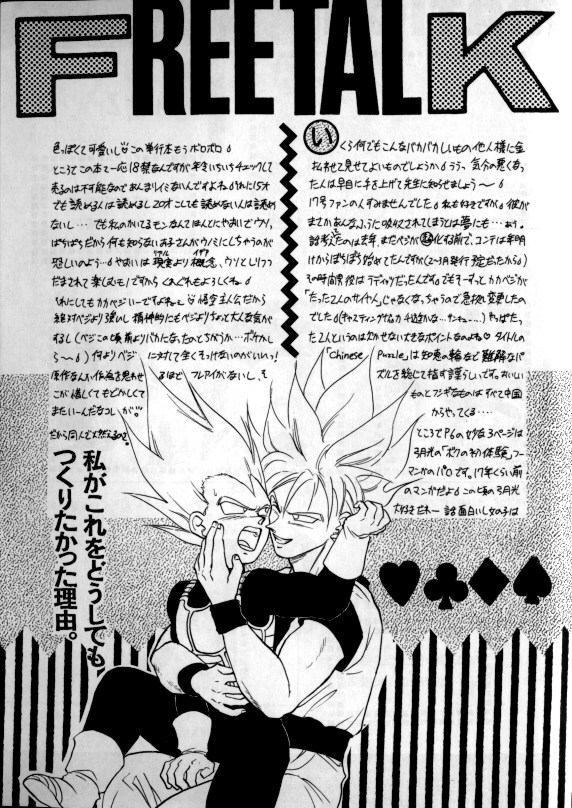 FREE TALK
いくら何でもこんなバカバカしいもの他人様に金
払わせて見せてよいものでしょうか。ううう、気分の悪くなっ
た人は早目に手を上げて先生に知らせましょう〜。
17号ファンの人すみませんでした。私も好きですが。彼が
まさかあんなふうに吸収されてしまうとは夢にも…
話考えたのは去年、まだベジが化する前で、コンテは年明
けからぱらぱら始めてたんですが(2〜3月発行予定だったから)
その時同居役はラディッツだったんです。でもそーすっとカカベジが
「たった二人のサイヤ人」じゃなくなっちゃうので急拠変更したの
でした
たった2人というのは欠かせない大きなポイントなのよね♡タイトルの
「Chinese Puzzle」は知恵の輪など難解なパ
ズルを総じて指す言葉らしいです。おいしい
ものとフシギなものはすべて中国
からやってくる‥‥
ところでP6の妙な3ページは
弓月光の「ボクの初体験」つー
マンガのパロです。17年くらい前
のマンガだよ。この頃の弓月光
大好きだれー 話面白いし女の子は
色っぽくて可愛いし♡この単行本もうボロボロ。
ところでこの本て一応18禁なんですが年きいちいちチェックして
売るのは不可能なのであんまりイミないんですよね。
でも読める人は読めるし20才こしても読めない人は読め
ないし…でも私のかいてるモンなんてほんとにやおいでウソ
ぱちばっかだから何も知らないおぢさんがウノミにしちゃうのが
恐しいのよ…。やおいは現実リアルより概念イデア、ウソとしりつつ
だまされて楽しむモノですからくれぐれもよろしくね。
それにしてもカカベジいーですよねえ♡悟空主人公だから
絶対ベジより強いし精神的にもベジよりちょっと大人な気が
するし
ら〜。)何よりベジに対して全くそっけないのがいいっ!
原作なんか作為を思わせるほどフレアイがないし、そ
こが悔しくてもどかしくて
またいーんだなコレが♡
だから同人で燃えるのさ。
私がこれをどうしても
つくりたかった理由。